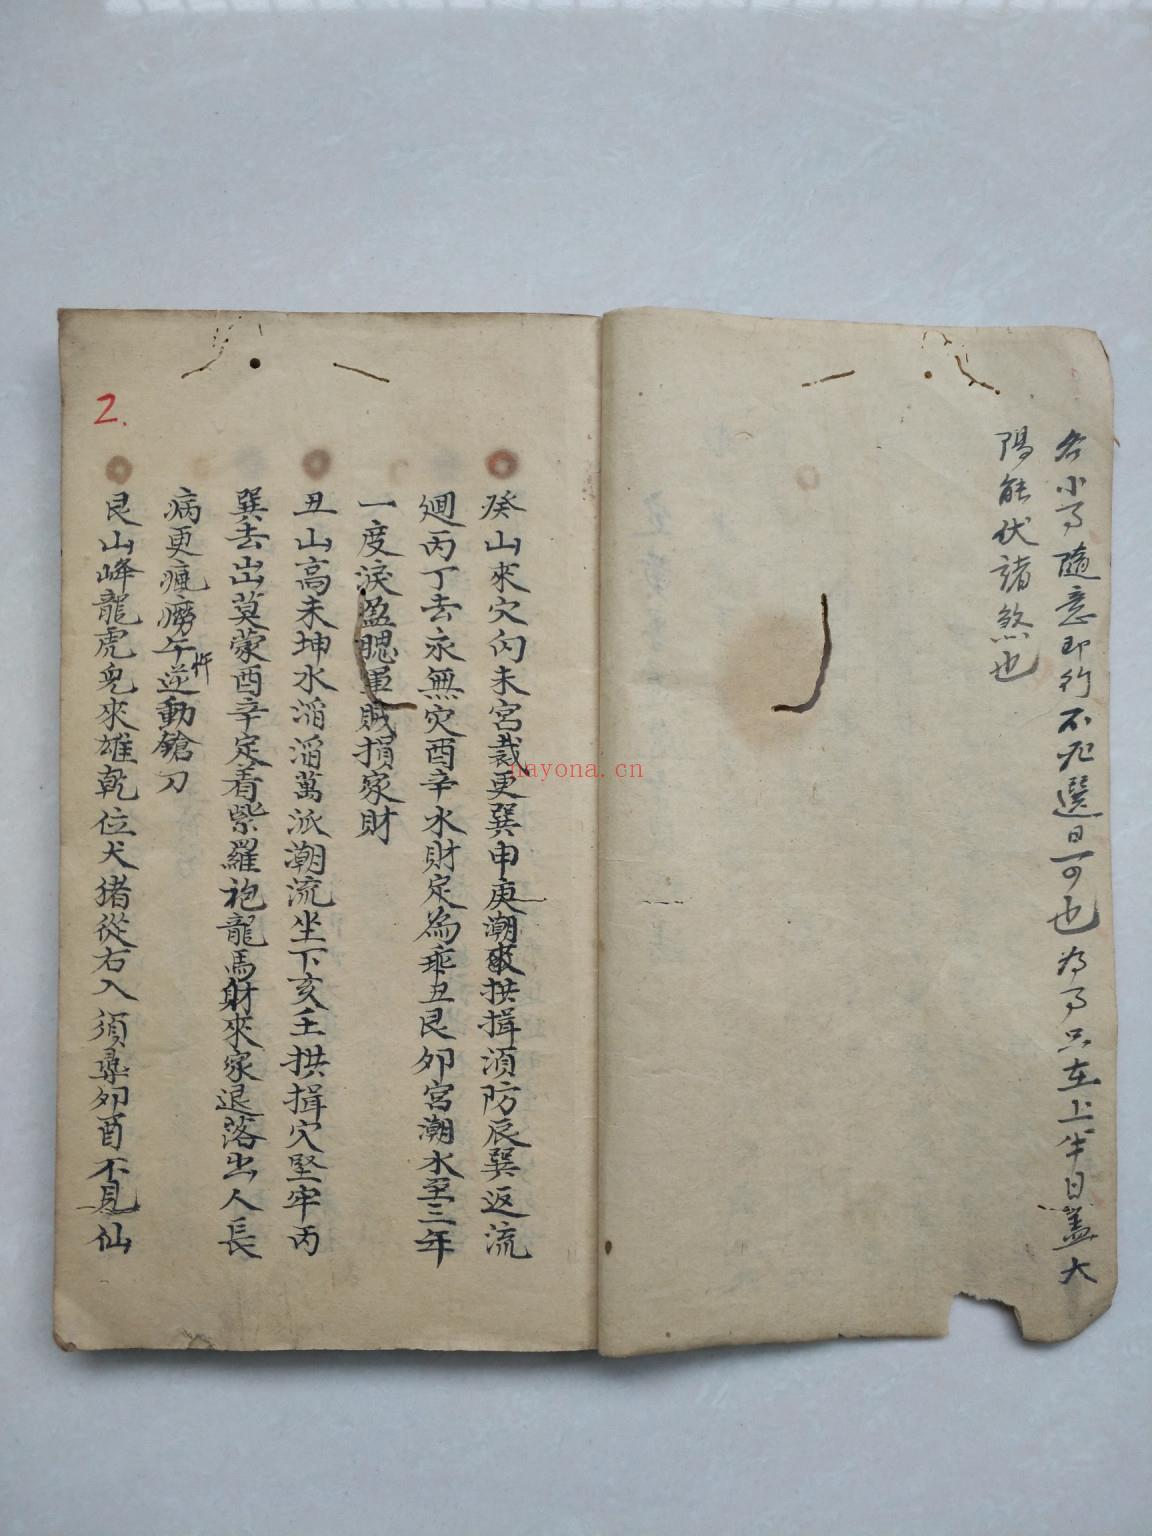 各小事隨意即行不犯選日可也為事只在上半日蓋大
陽能伏諸煞也
癸山來穴向未宮裁更巽申庚潮來拱揖須防辰巽返流
廻丙丁去永無灾酉辛水財定為乖丑艮夘宮潮水至三年
一度淚盈腮軍賊損家財
丑山高未坤水滔滔萬派潮流坐下亥壬拱揖穴堅牢丙
巽去出莫蒙酉辛定着紫羅袍龍馬財來家退落出人長
病更瘋癆午逆動鎗刀
忤
艮山峰龍虎兌來雄乾位犬猪從右入須尋夘酉不見仙
2.
nayona.cn